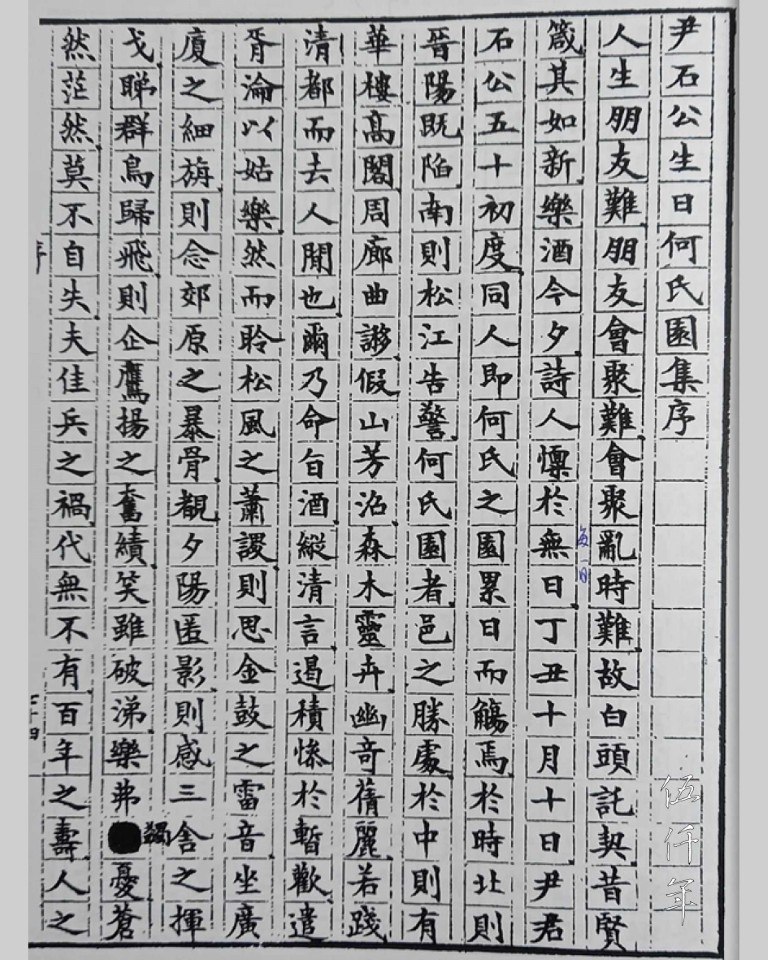 尹石公生日何氏園集序
人生朋友難朋友會聚難會聚亂時難故白頭託契昔賢
箴其如新樂酒今夕詩人懍於無日丁丑十月十日尹君
石公五十初度同人即何氏之園累日而觴焉於時北則
晉陽既陷南則松江告警何氏園者邑之勝處於中則有
華樓高閣周廊曲謻假山芳沼森木靈卉幽奇蒨麗若踐
清都而去人閒也爾乃命旨酒縱清言遏積慘於暫歡遣
胥淪以姑樂然而聆松風之蕭謖則思金鼓之雷音坐廣
廈之細旃則念郊原之暴骨覩夕陽匿影則感三舍之揮
戈睇群鳥歸飛則企鷹揚之奮績笑雖破涕樂弗蠲憂蒼
然茫然莫不自失夫佳兵之禍代無不有百年之壽人之
序
七十四
伍仟年